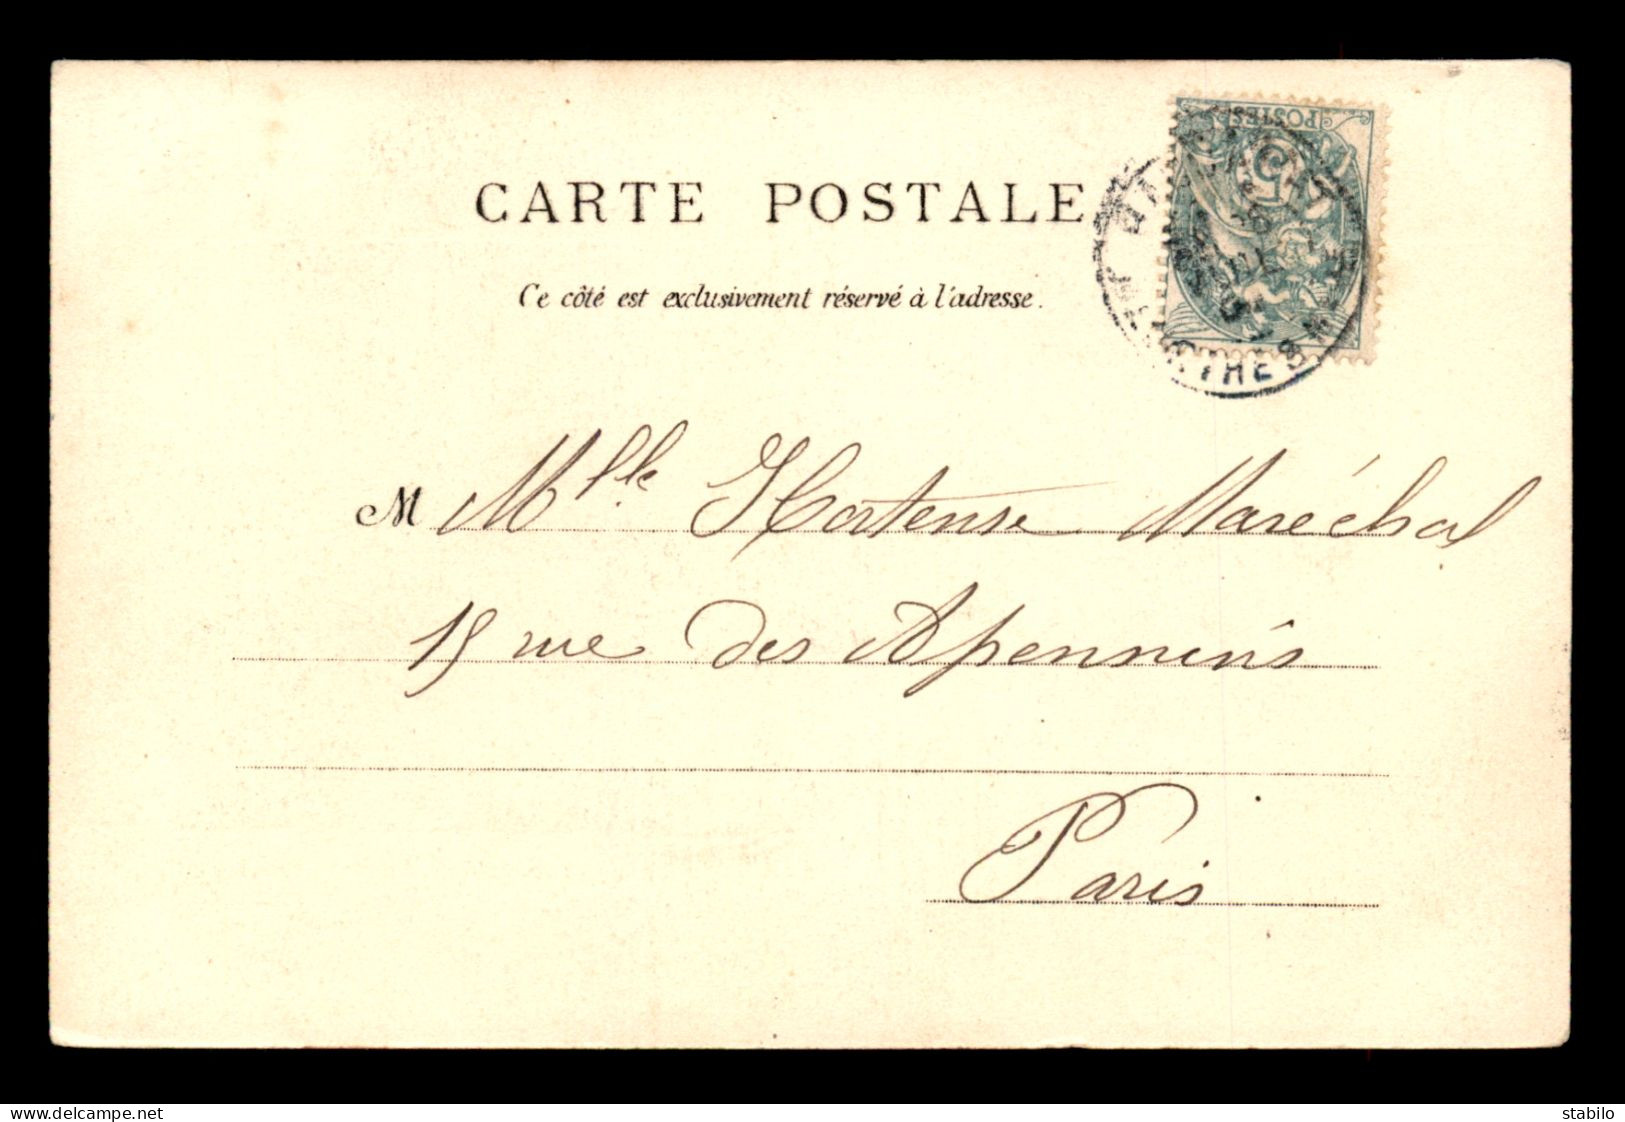 CARTE POSTALE
POSTES
5
Ce côté est exclusivement réservé à l'adresse.
M Mlle Hortense Maréchal
15 rue des Apennins
Paris
delcampe.net
stabilo